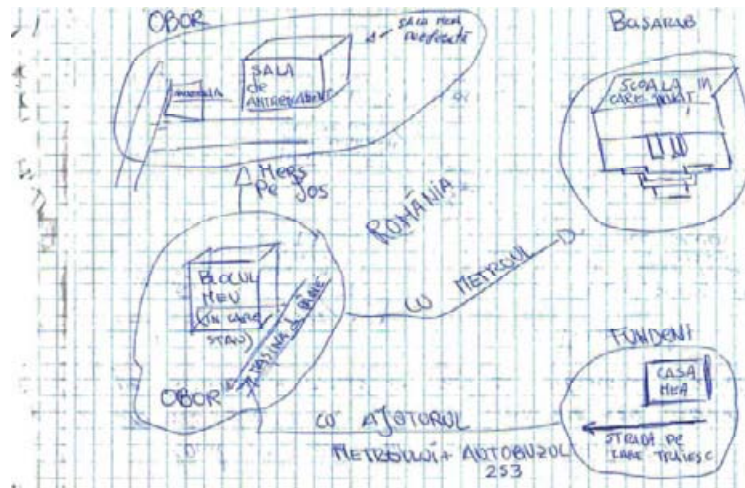 OBOR
SALA MEA
PREFERATĂ
SALA
de
ANTRENAMENT
BASARAB
ȘCOALA IN
CARE INVAT
MERS
PE JOS
ROMÂNIA
BLOCUL
MEU
(IN CARE
STAU)
OBOR
CU METROUL
FUNDENI
CASA
MEA
STRADA PE
CARE TRĂIESC
CU AJUTORUL
METROULUI + AUTOBUZUL
253